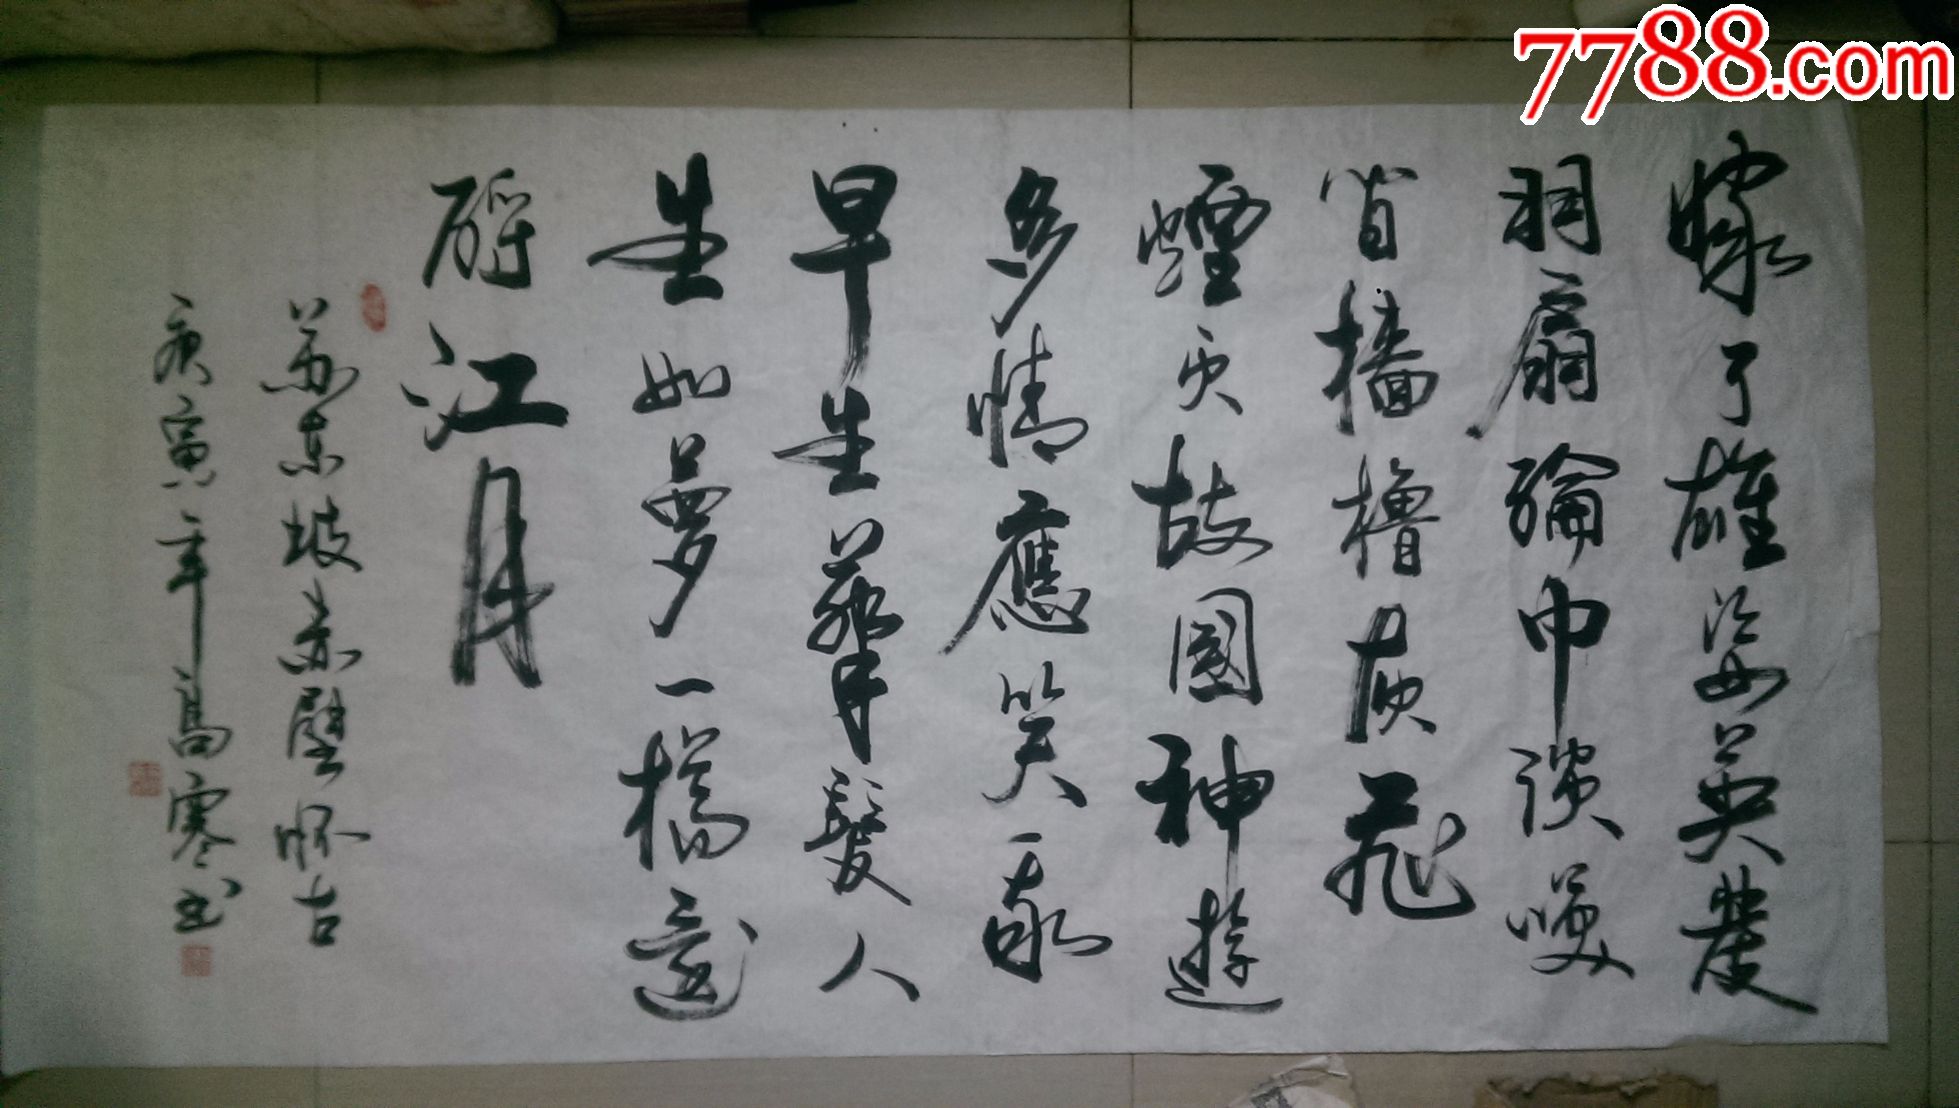 7788.com
嫁了雄姿英發
羽扇綸巾談咲
間檣櫓灰飛
煙灭故國神遊
多情應笑我
早生華髮人
生如夢一樽還
酹江月
苏东坡赤壁怀古
庚寅年高寒书